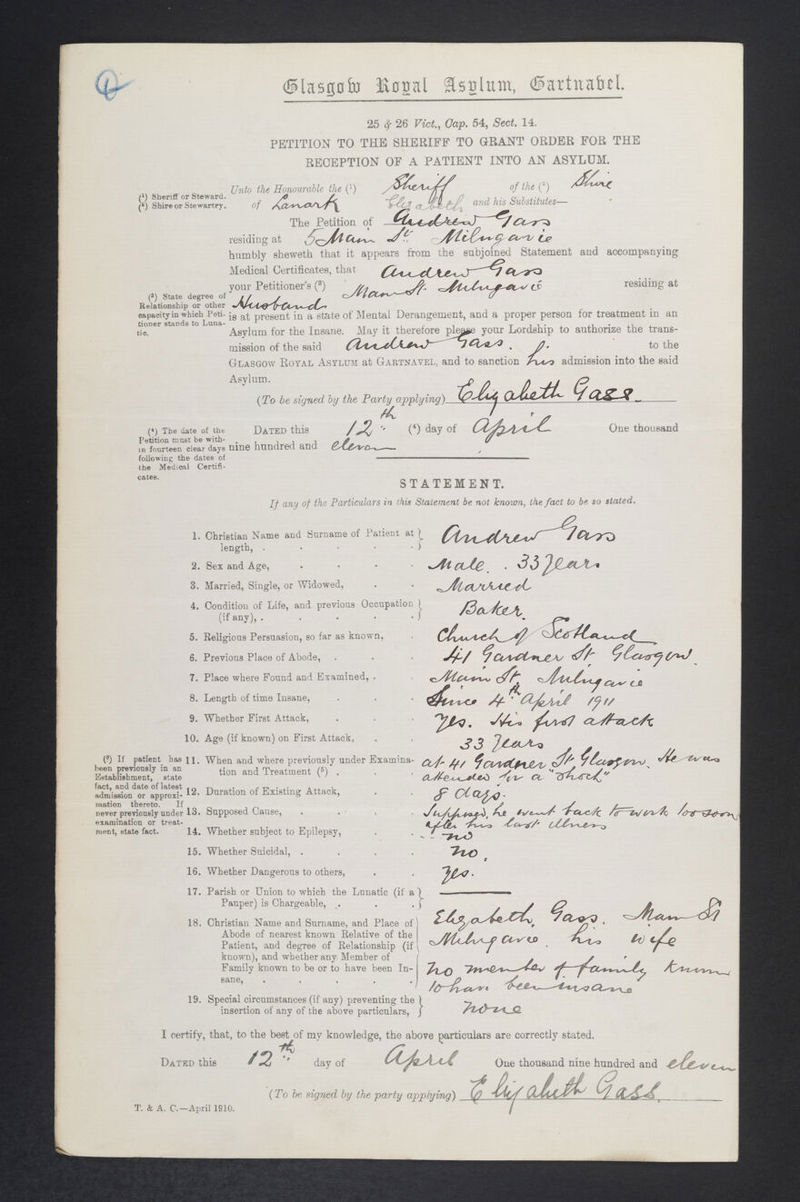 Glasgow Royal Asylum, Gartnavel.
25 & 26 Vict., Cap. 54, Sect. 14.
PETITION TO THE SHERIFF TO GRANT ORDER FOR THE
RECEPTION OF A PATIENT INTO AN ASYLUM.
(¹) Sheriff or Steward.
(²) Shire or Stewartry.
Unto the Honourable the (¹) Sheriff of the (²) Shire
of Lanark Elizabeth and his Substitutes—
The Petition of Andrew Gass
residing at 5 Main St. Milngavie
humbly sheweth that it appears from the subjoined Statement and accompanying
Medical Certificates, that Andrew Gass
(³) State degree of Relationship or other capacity in which Petitioner stands to Lunatic.
your Petitioner's (³) Husband Main St. Milngavie residing at
is at present in a state of Mental Derangement, and a proper person for treatment in an
Asylum for the Insane. May it therefore please your Lordship to authorize the trans-
mission of the said Andrew Gass. to the
GLASGOW ROYAL ASYLUM at GARTNAVEL, and to sanction his admission into the said
Asylum.
(To be signed by the Party applying) Elizabeth Gass.
(⁴) The date of the Petition must be within fourteen clear days following the dates of the Medical Certificates.
DATED this 12th (⁴) day of April One thousand
nine hundred and eleven
STATEMENT.
If any of the Particulars in this Statement be not known, the fact to be so stated.
1. Christian Name and Surname of Patient at length, . Andrew Gass
2. Sex and Age, Male. . 33 Years
3. Married, Single, or Widowed, Married
4. Condition of Life, and previous Occupation (if any), . Baker.
5. Religious Persuasion, so far as known, Church of Scotland
6. Previous Place of Abode, . 41 Gardner St Glasgow.
7. Place where Found and Examined, . Main St, Milngavie
8. Length of time Insane, Since 4th April 1911
9. Whether First Attack, Yes. His first attack
10. Age (if known) on First Attack, 33 Years
(⁵) If patient has been previously in an Establishment, state fact, and date of latest admission or approximation thereto. If never previously under examination or treatment, state fact.
11. When and where previously under Examination and Treatment (⁵) . at 41 Gardner St Glasgow. He was
attended for a "shock"
12. Duration of Existing Attack, 8 days.
13. Supposed Cause, . Supposed, he went back to work too soon
after his last illness
14. Whether subject to Epilepsy, no
15. Whether Suicidal, . no,
16. Whether Dangerous to others, Yes.
17. Parish or Union to which the Lunatic (if a Pauper) is Chargeable, .
18. Christian Name and Surname, and Place of Abode of nearest known Relative of the Patient, and degree of Relationship (if known), and whether any Member of Family known to be or to have been Insane, Elizabeth Gass. Main St
Milngavie. his wife
no member of family known
to have been insane
19. Special circumstances (if any) preventing the insertion of any of the above particulars, none
I certify, that, to the best of my knowledge, the above particulars are correctly stated.
DATED this 12th day of April One thousand nine hundred and eleven
(To be signed by the party applying) Elizabeth Gass.
T. & A. C.—April 1910.